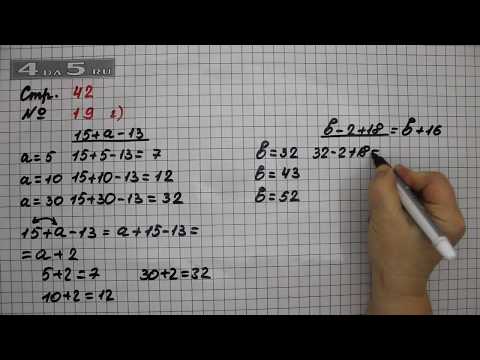 4 DA 5 RU
Стр. 42
№ 19 г)
15+а-13
а=5 15+5-13=7
а=10 15+10-13=12
а=30 15+30-13=32
15+а-13=а+15-13=
=а+2
5+2=7 30+2=32
10+2=12
в-2+18=в+16
в=32 32-2+18=
в=43
в=52